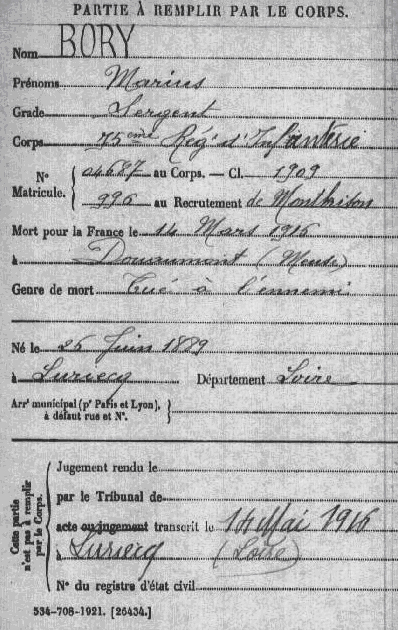 PARTIE À REMPLIR PAR LE CORPS.
Nom BORY
Prénoms Marius
Grade Sergent
Corps 75eme Rég' d'Infanterie
N° Matricule. 04687 au Corps. — Cl. 1909
996 au Recrutement de Montbrison
Mort pour la France le 14 Mars 1916
à Douaumont (Meuse)
Genre de mort Tué à l'ennemi
Né le 26 Juin 1889
à Luriecq Département Loire
Arrt municipal (pr Paris et Lyon), à défaut rue et N°.
Cette partie n'est pas à remplir par le Corps.
Jugement rendu le
par le Tribunal de
acte ou jugement transcrit le 14 Mai 1916
à Luriecq (Loire)
N° du registre d'état civil
534-708-1921. [26434.]